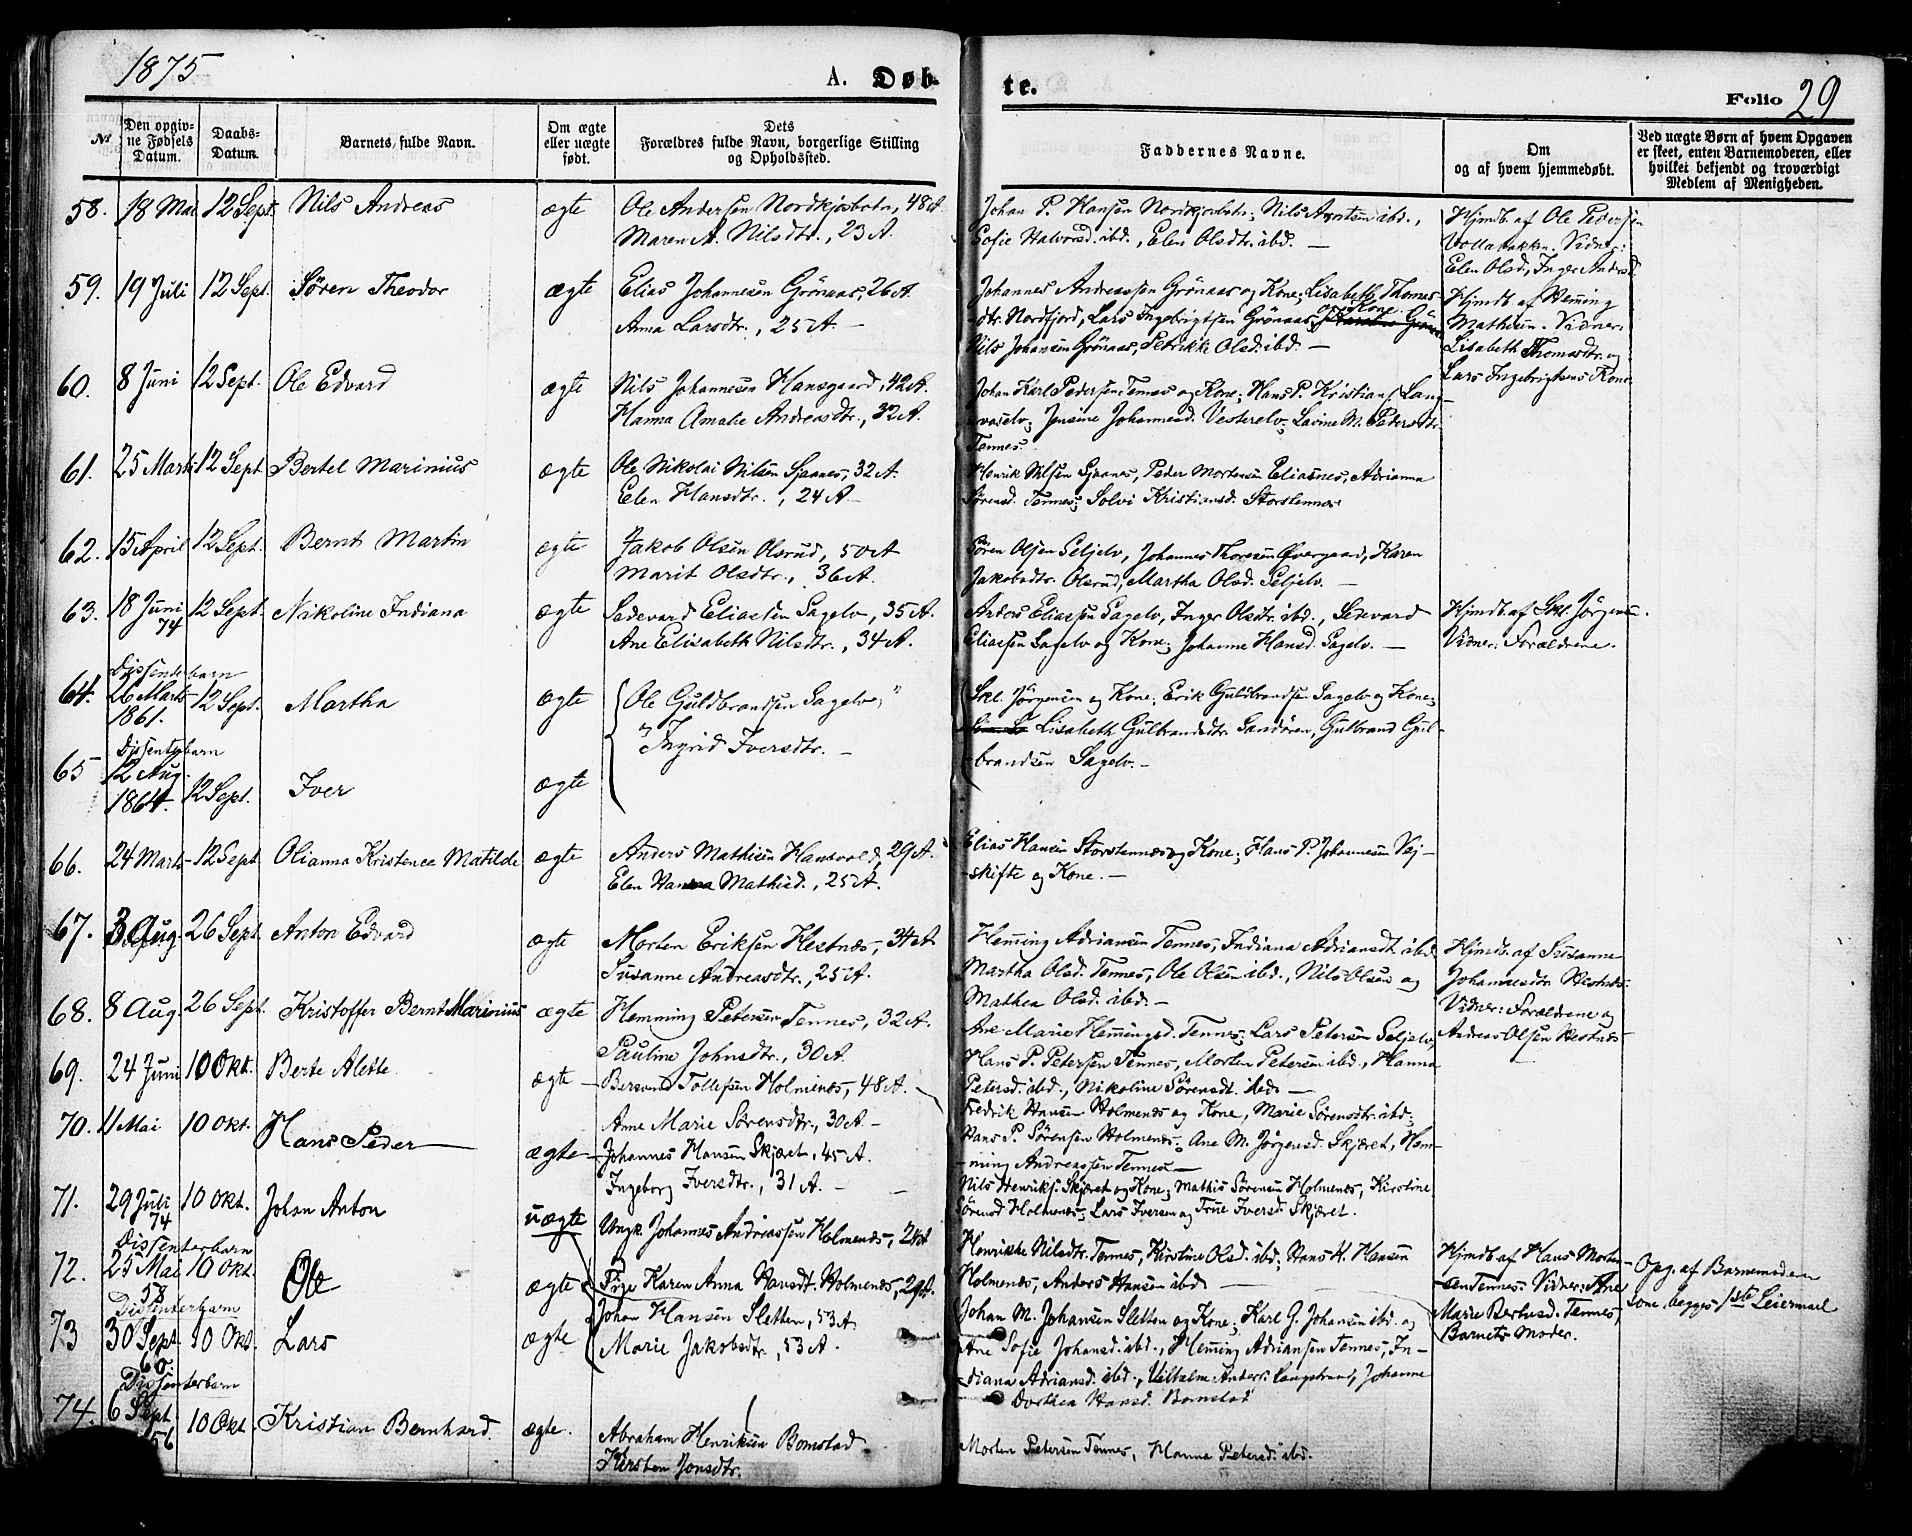 1875
A. Døb-
te.
Folio 29
No
Den opgiv-
ne Fødsels
Datum.
Daabs-
Datum.
Barnets fulde Navn.
Om ægte
eller uægte
født.
Dets
Forældres fulde Navn, borgerlige Stilling
og Opholdssted.
Faddernes Navne.
Om
og af hvem hjemmedøbt.
Ved uægte Børn af hvem Opgaven
er skeet, enten Barnemoderen, eller
hvilket bekjendt og troværdigt
Medlem af Menigheden.
58. 18 Mai 12 Sept. Nils Andreas ægte Ole Andersen Nordkjosbotn, 48 A.
Maren A. Nilsdtr., 23 A.
Johan P. Hansen Nordkjosbotn; Nils ibd.,
Sofie Halvorsd. ibd., Elen Olsdtr. ibd. —
Hjmdb. af Ole Pedersen
Vollabakken. Vidner:
Elen Olsd, Inger Andersd.
59. 19 Juli 12 Sept. Søren Theodor ægte Elias Johannesen Grönaas, 26 A.
Anna Larsdtr., 25 A. —
Johannes Andreassen Grönaas og Kone; Lisabeth Thomes-
dtr. Nordfjord, Lars Ingebrigtsen Grönaas, og Kone
Nils Johansen Grönaas, Petrikke Olsd. ibd. —
Hjmdt. af Heming
Mathisen. Vidner:
Lisabeth Thomasdtr. og
Lars Ingebrigtsens Kone
60. 8 Juni 12 Sept. Ole Edvard ægte Nils Johannesen Hansgaard, 42 A.
Hanna Amalie Andreasdtr., 32 A.
Johan Karl Pedersen Tennes og Kone; Hans P. Kristians. Lang-
vaselv; Jensine Johannesd. Vesterelv; Lavine M. Petersdtr.
Tennes.
61. 25 Marts 12 Sept. Bertel Marinius ægte Ole Nikolai Nilsen Sjaanes, 32 A.
Elen Hansdtr., 24 A —
Henrik Nilsen Sjaanes, Peder Mortensen Eliasnes, Adrianna
Sørensd. Tennes; Solvi Kristiansd. Storstennes
62. 15 April 12 Sept. Bernt Martin ægte Jakob Olsen Olsrud, 50 A
Marit Olsdtr., 36 A.
Søren Olsen Seljelv, Johannes Thoresen Øvergaard, Karen
Jakobsdtr. Olsrud, Martha Olsd. Seljelv. —
63. 18 Juni 74 12 Sept. Nikoline Indiana ægte Sedevard Eliassen Sagelv, 35 A.
Ane Elisabeth Nilsdtr., 34 A.
Anders Eliassen Sagelv, Inger Olsdtr. ibd.,
Eliassen Sagelv og Kone; Johanne Hansd. Sagelv. —
Hjmdt af Skl. Jørgensen.
Vidner: Forældrene.
Dissenterbarn
64. 26 Marts 1861. 12 Sept. Martha ægte Ole Guldbrandsen Sagelv, "
" Ingrid Iversdtr. —
Skl. Jørgensen og Kone; Erik Guldbrandsen Sagelv og Kone;
Lisabeth Gulbrandsdtr. Sandören, Gulbrand Gul-
brandsen Sagelv. —
Dissenterbarn
65 12 Aug. 1864. 12 Sept. Iver ægte
66. 24 Marts 12 Sept. Olianna Kristence Matilde ægte Anders Mathisen Hansvold, 29 A.
Elen Hanna Mathisd., 25 A.
Elias Hansen Storstennes og Kone; Hans P. Johannesen Vej-
skifte og Kone. —
67. 3 Aug. 26 Sept. Anton Edvard ægte Morten Eriksen Hestnæs, 34 A.
Susanne Andreasdtr., 25 A.
Hemming Adriansen Tennes, Indiana Adriansdt. ibd.
Martha Olsd. Tennes, Ole Olsen ibd., Nils Olsen og
Mathea Olsd. ibd. —
Hjmdb. af Susanne
Johannesdtr. Hestnes.
Vidner: Forældrene og
Andreas Olsen Hestnes
68. 8 Aug. 26 Sept. Kristoffer Bernt Marinius ægte Hemming Petersen Tennes, 32 A.
Pauline Johnsdtr., 30 A.
Ane Marie Hemingsd. Tennes; Lars Petersen Seljelv
Hans P. Petersen Tennes, Morten Petersen ibd., Hanna
Petersd. ibd., Nikoline Sørensdt. ibd. —
69. 24 Juni 10 Okt. Berte Alette ægte Tollefsen Holmenes, 48 A.
Anne Marie Sørensdtr., 30 A. —
Fredrik Hansen Holmenes og Kone, Marie Sørensdtr. ibd;
Hans P. Sørensen Holmenes; Ane M. Jørgensd. Skjæret, Hem-
ming Andreassen Tennes. —
70. 11 Mai 10 Okt. Hans Peder ægte Johannes Hansen Skjæret, 45 A.
Ingeborg Iversdtr., 31 A. —
Nils Henriks. Skjæret og Kone; Mathis Sørensen Holmenes, Kirstine
Sørensd Holmenes; Lars Iversen og Trine Iversd Skjæret.
71. 29 Juli 74 10 Okt. Johan Anton uægte Ungk. Johannes Andreassen Holmenes, 24 A
Pige Karen Anna Hansdt. Holmenes, 29 A.
Henrikke Nilsdtr. Tennes, Kirstine Olsd. ibd; Hans H. Hansen
Holmenes, Anders Hansen ibd. —
Hjmdb af Hans Morten-
sen Tennes. Vidner: Ane
Marie Bertusd. Tennes,
Barnets Moder.
Opg. af Barnemoderen
begges 1ste Leiermaal
Dissenterbarn
72. 25 Mai 58 10 Okt. Ole ægte Johan Hansen Sletten, 53 A
Marie Jakobsdtr, 53 A.
Johan M. Johansen Sletten og Kone; Karl G. Johansen ibd. og
Ane Sofie Johansd. ibd., Hemming Adriansen Tennes, In-
diana Adriansd. ibd., Vilhelm Anders. Langstrand, Johanne
Dorthea Hansd. Bomstad
Dissenterbarn
73 30 Sept. 60. 10 Okt. Lars ægte
Dissenterbarn
74. 6 Sept. 56 10 Okt. Kristian Bernhard. ægte. Abraham Henriksen Bomstad
Kirsten Jonsdtr.
Morten Petersen Tennes, Hanna Petersd. ibd.